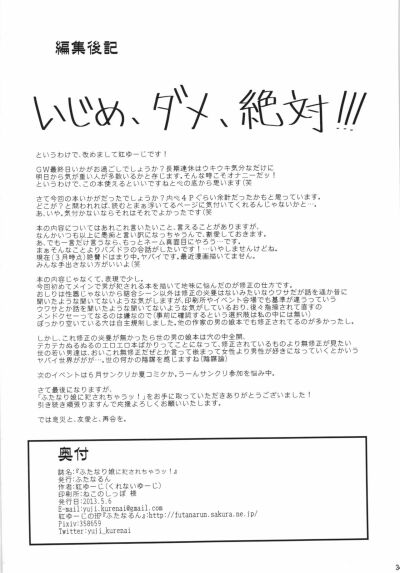 編集後記
いじめ、ダメ、絶対!!!
というわけで、改めまして紅ゆーじです!
GW最終日いかがお過ごしでしょうか?長期連休はウキウキ気分なだけに
明日から気が重い人が多数いるかと存じます。そんな時こそオナニーだッ!
というわけで、この本使えるといいですねと心の底から思います(笑
さて今回の本いかがだったでしょうか?内心4Pぐらい余計だったかもと思っています。
どこが?と問われれば、読むとまぁ浮いてるページに気付いてくれるんじゃないかと…。
あ、いや、気付かないならそれはそれでよかったです(笑
本の内容についてはあれこれ言いたいこと、言えることがありますが、
なんかいつも以上に愚痴と言い訳になっちゃうんで、割愛しておきます。
あ、でも一言だけ言うなら、もっとネーム真面目にやろう…です。
まぁそんなことよりパズドラの会話がしたいです!…いやしませんけどね。
現在(3月時点)絶賛ドはまり中。ヤバイです。最近漫画描いてません。
みんな手出さない方がいいよ。(笑
本の内容じゃなくて、表現で少し。
今回初めてメインで男が犯される本を描いて地味に悩んだのが修正の仕方です。
おしりは性器じゃないから結合シーン以外は修正の必要はないみたいなウワサだか話を遥か昔に
聞いたような聞いてないような気がしますが、印刷所やイベント会場でも基準が違うっていう
ウワサとか話を聞いたような聞いてないような気がしてならないでおり、後々指摘されて直すの
メンドクセーってなるのは嫌なので(事前に確認するという選択肢は私の中には無い)
ぽっかり空いている穴は自主規制しました。他の作家の男の娘本でも修正されてるのが多かったし。
しかし、これ修正の必要が無かったら世の男の娘本は穴の中全開、
テカテカでぬるぬるのエロエロ本ばかりってことになって、修正されているものより無修正が見たい
世の若い男達は、おいこれ無修正だぜとか言って嵌まって女性より男性が好きになっていくとかいう
ヤバイ世界ががが…。世の何かの陰謀を感じますね(陰謀論)
次のイベントは6月サンクリか夏コミケか。うーんサンクリ参加を悩み中。
さて最後になりますが、
「ふたなり娘に犯されちゃうッ!」をお手に取っていただきありがとうございました!
引き続き頑張りますんで応援よろしくお願いいたします。
では息災と、友愛と、再会を。
奥付
誌名:『ふたなり娘に犯されちゃうッ!』
発行:ふたなるん
作者:紅ゆーじ(くれないゆーじ)
印刷所:ねこのしっぽ 様
発行日:2013.5.6
E-mail:yuji.kurenai@gmail.com
紅ゆーじのHP『ふたなるん』:http://futanarun.sakura.ne.jp/
Pixiv:358659
Twitter:yuji_kurenai